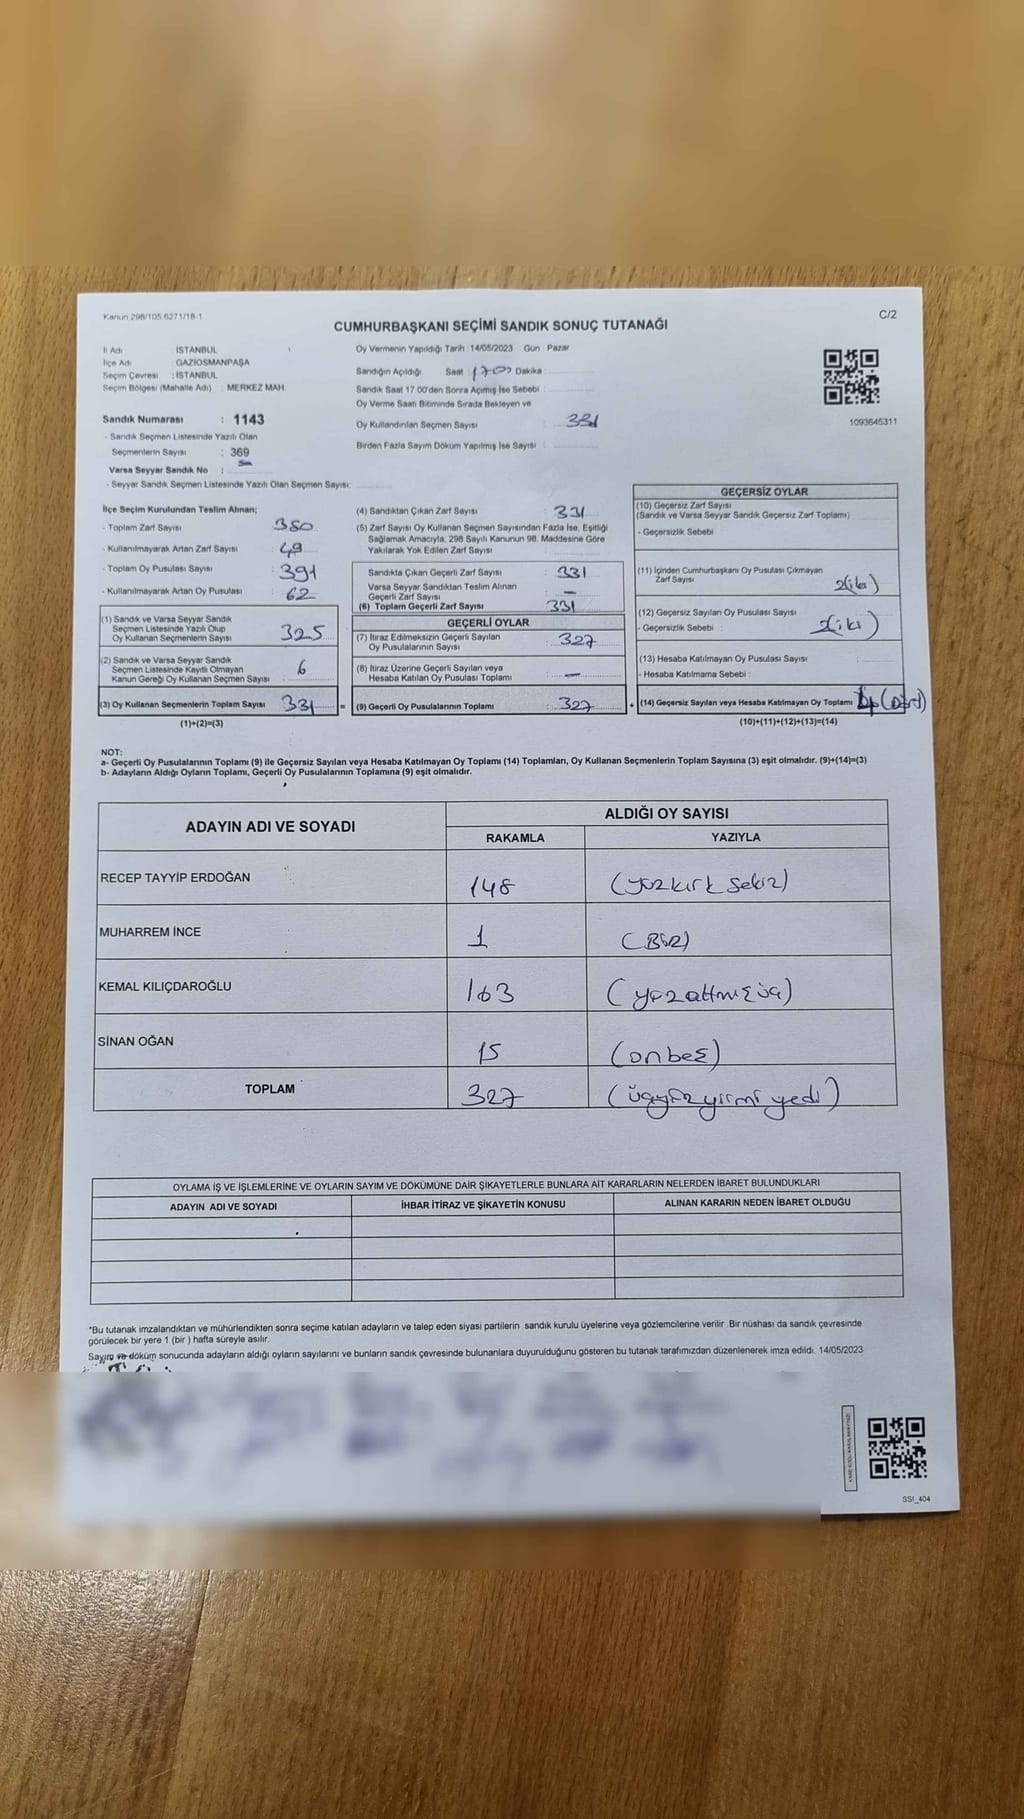 Kanun:298/105.6271/18-1
C/2
CUMHURBAŞKANI SEÇİMİ SANDIK SONUÇ TUTANAĞI
İl Adı : İSTANBUL
İlçe Adı : GAZİOSMANPAŞA
Seçim Çevresi : İSTANBUL
Seçim Bölgesi (Mahalle Adı) : MERKEZ MAH.
Sandık Numarası : 1143
- Sandık Seçmen Listesinde Yazılı Olan
Seçmenlerin Sayısı : 369
Varsa Seyyar Sandık No :
- Seyyar Sandık Seçmen Listesinde Yazılı Olan Seçmen Sayısı:
Oy Vermenin Yapıldığı Tarih : 14/05/2023 Gün : Pazar
Sandığın Açıldığı Saat : 1700 Dakika :
Sandık Saat 17.00'den Sonra Açımış İse Sebebi :
Oy Verme Saati Bitiminde Sırada Bekleyen ve
Oy Kullandırılan Seçmen Sayısı : 331
Birden Fazla Sayım Döküm Yapılmış İse Sayısı :
1093645311
İlçe Seçim Kurulundan Teslim Alınan;
- Toplam Zarf Sayısı : 380
- Kullanılmayarak Artan Zarf Sayısı : 49
- Toplam Oy Pusulası Sayısı : 391
- Kullanılmayarak Artan Oy Pusulası : 62
(1) Sandık ve Varsa Seyyar Sandık
Seçmen Listesinde Yazılı Olup
Oy Kullanan Seçmenlerin Sayısı : 325
(2) Sandık ve Varsa Seyyar Sandık
Seçmen Listesinde Kayıtlı Olmayan
Kanun Gereği Oy Kullanan Seçmen Sayısı : 6
(3) Oy Kullanan Seçmenlerin Toplam Sayısı : 331 =
(1)+(2)=(3)
(4) Sandıktan Çıkan Zarf Sayısı : 331
(5) Zarf Sayısı Oy Kullanan Seçmen Sayısından Fazla İse, Eşitliği
Sağlamak Amacıyla, 298 Sayılı Kanunun 98. Maddesine Göre
Yakılarak Yok Edilen Zarf Sayısı :
Sandıkta Çıkan Geçerli Zarf Sayısı : 331
Varsa Seyyar Sandıktan Teslim Alınan
Geçerli Zarf Sayısı : —
(6) Toplam Geçerli Zarf Sayısı : 331
GEÇERLİ OYLAR
(7) İtiraz Edilmeksizin Geçerli Sayılan
Oy Pusulalarının Sayısı : 327
(8) İtiraz Üzerine Geçerli Sayılan veya
Hesaba Katılan Oy Pusulası Toplamı : —
(9) Geçerli Oy Pusulalarının Toplamı : 327 +
GEÇERSİZ OYLAR
(10) Geçersiz Zarf Sayısı
(Sandık ve Varsa Seyyar Sandık Geçersiz Zarf Toplamı) :
- Geçersizlik Sebebi :
(11) İçinden Cumhurbaşkanı Oy Pusulası Çıkmayan
Zarf Sayısı : 2(iki)
(12) Geçersiz Sayılan Oy Pusulası Sayısı : 2(iki)
- Geçersizlik Sebebi :
(13) Hesaba Katılmayan Oy Pusulası Sayısı :
- Hesaba Katılmama Sebebi :
(14) Geçersiz Sayılan veya Hesaba Katılmayan Oy Toplamı : 4 (Dört)
(10)+(11)+(12)+(13)=(14)
NOT:
a- Geçerli Oy Pusulalarının Toplamı (9) ile Geçersiz Sayılan veya Hesaba Katılmayan Oy Toplamı (14) Toplamları, Oy Kullanan Seçmenlerin Toplam Sayısına (3) eşit olmalıdır. (9)+(14)=(3)
b- Adayların Aldığı Oyların Toplamı, Geçerli Oy Pusulalarının Toplamına (9) eşit olmalıdır.
ADAYIN ADI VE SOYADI ALDIĞI OY SAYISI
RAKAMLA YAZIYLA
RECEP TAYYİP ERDOĞAN 148 (yüzkırk sekiz)
MUHARREM İNCE 1 (Bir)
KEMAL KILIÇDAROĞLU 163 (yüzaltmışüç)
SİNAN OĞAN 15 (onbeş)
TOPLAM 327 (üçyüzyirmi yedi)
OYLAMA İŞ VE İŞLEMLERİNE VE OYLARIN SAYIM VE DÖKÜMÜNE DAİR ŞİKAYETLERLE BUNLARA AİT KARARLARIN NELERDEN İBARET BULUNDUKLARI
ADAYIN ADI VE SOYADI İHBAR İTİRAZ VE ŞİKAYETİN KONUSU ALINAN KARARIN NEDEN İBARET OLDUĞU
*Bu tutanak imzalandıktan ve mühürlendikten sonra seçime katılan adayların ve talep eden siyasi partilerin sandık kurulu üyelerine veya gözlemcilerine verilir. Bir nüshası da sandık çevresinde
görülecek bir yere 1 (bir ) hafta süreyle asılır.
Sayım ve döküm sonucunda adayların aldığı oyların sayılarını ve bunların sandık çevresinde bulunanlara duyurulduğunu gösteren bu tutanak tarafımızdan düzenlenerek imza edildi. 14/05/2023
SSI_404